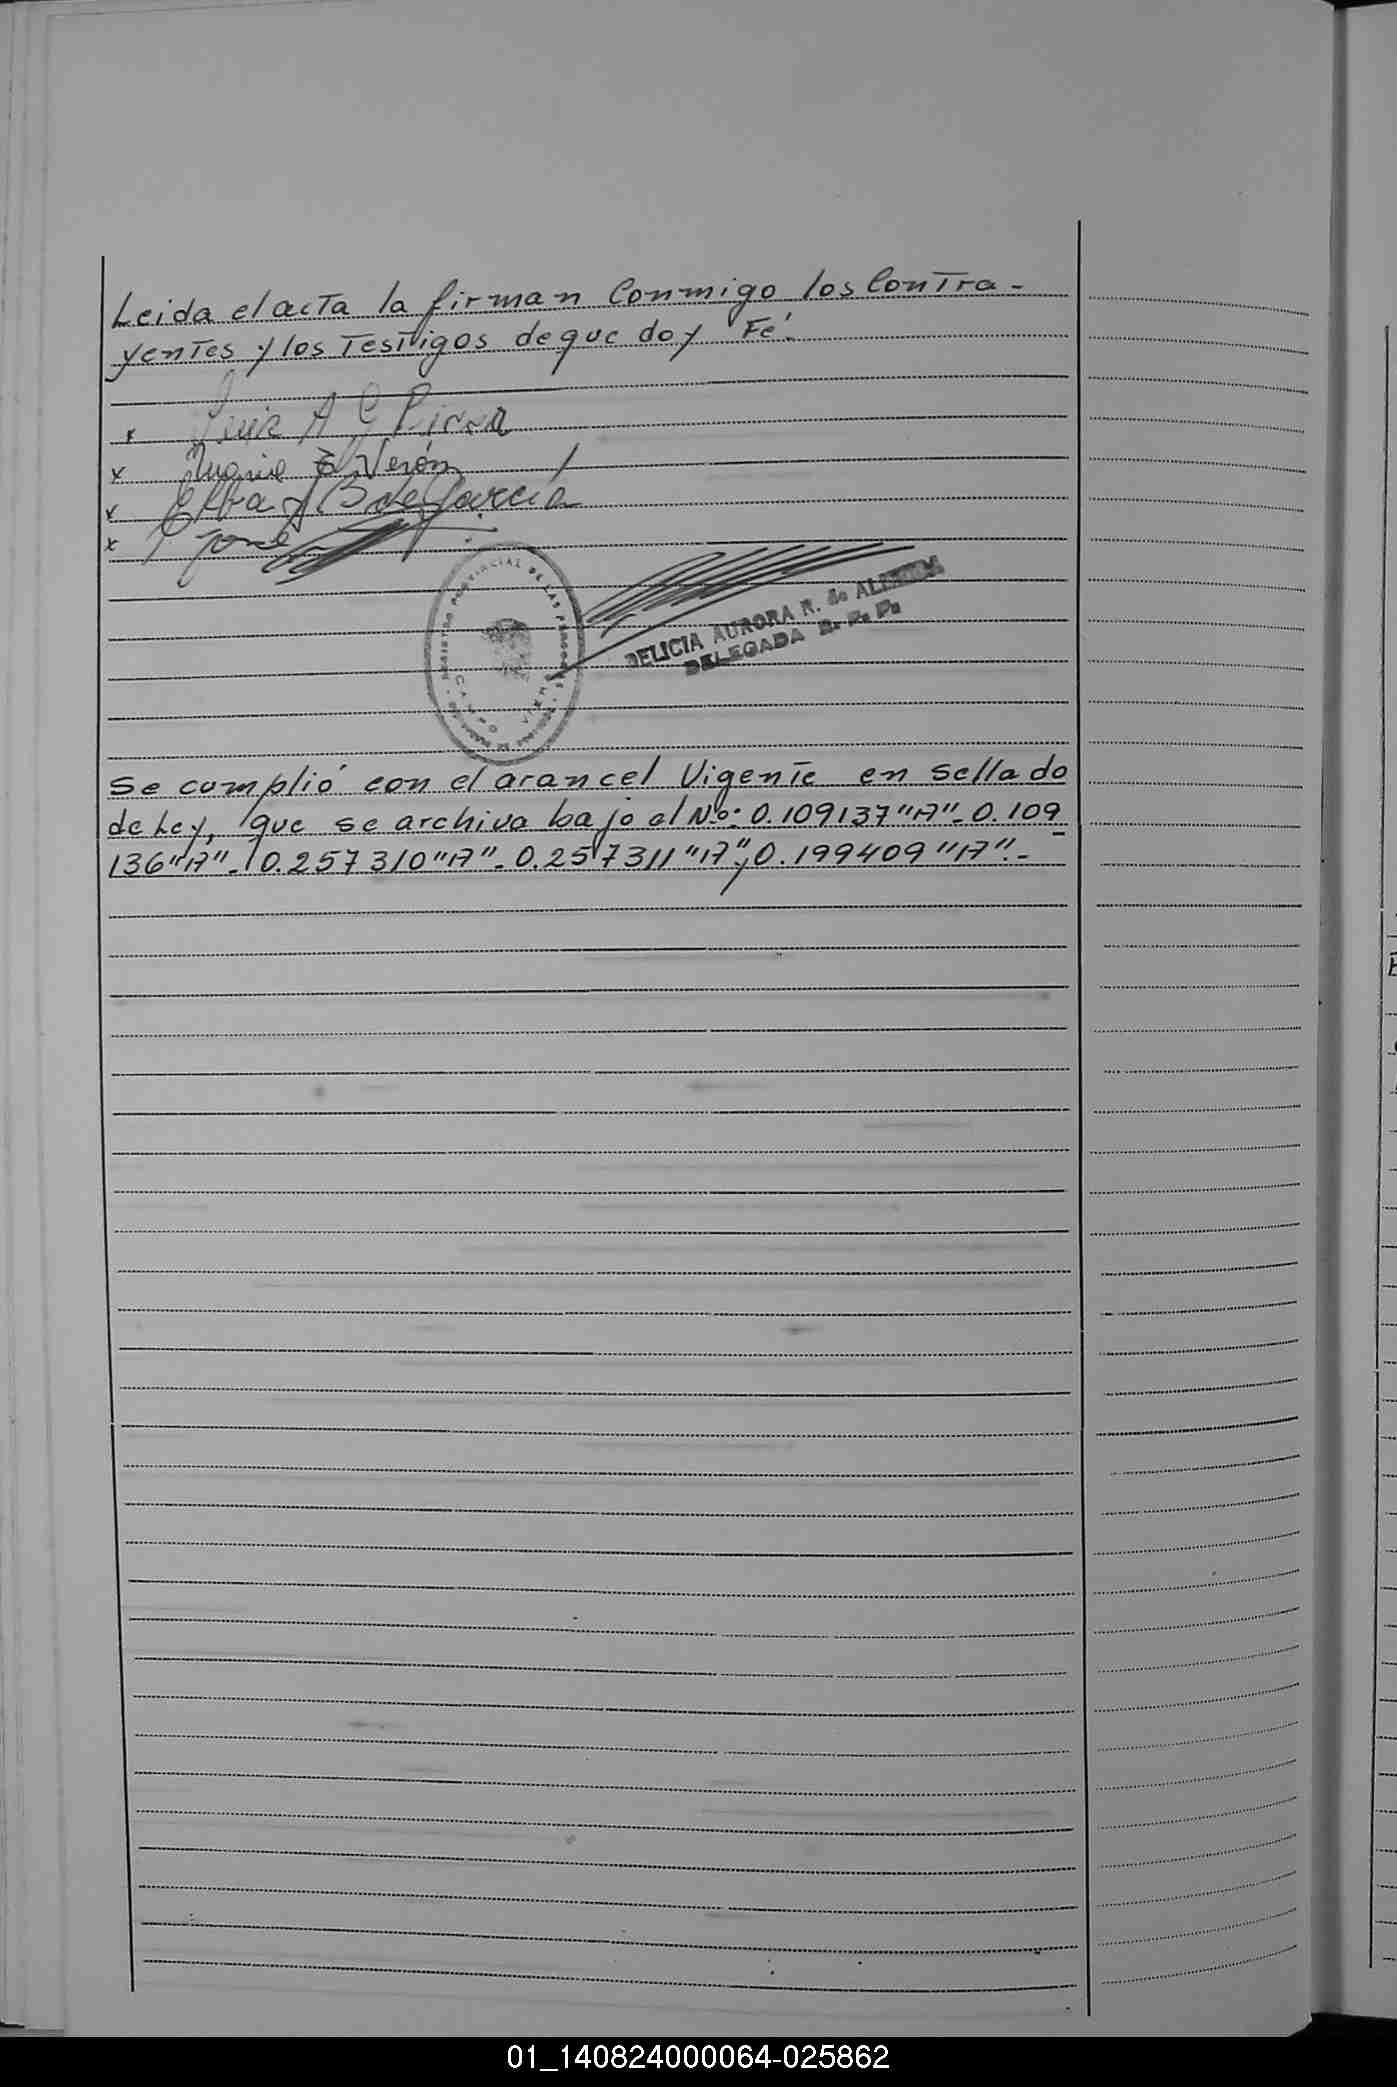 Leida el acta la firman Conmigo los Contra-
yentes y los Testigos de que doy Fé.
x Luis A G
x Verón
x Elba B de García
x José
REGISTRO PROVINCIAL DE LAS PERSONAS
DELICIA AURORA R. de ALMEIDA
DELEGADA R. P. P.
Se cumplió con el arancel Vigente en sellado
de Ley, que se archiva bajo el No: 0.109137"A"-0.109
136"A"-0.257310"A"-0.257311"A"y0.199409"A".-
01_140824000064-025862